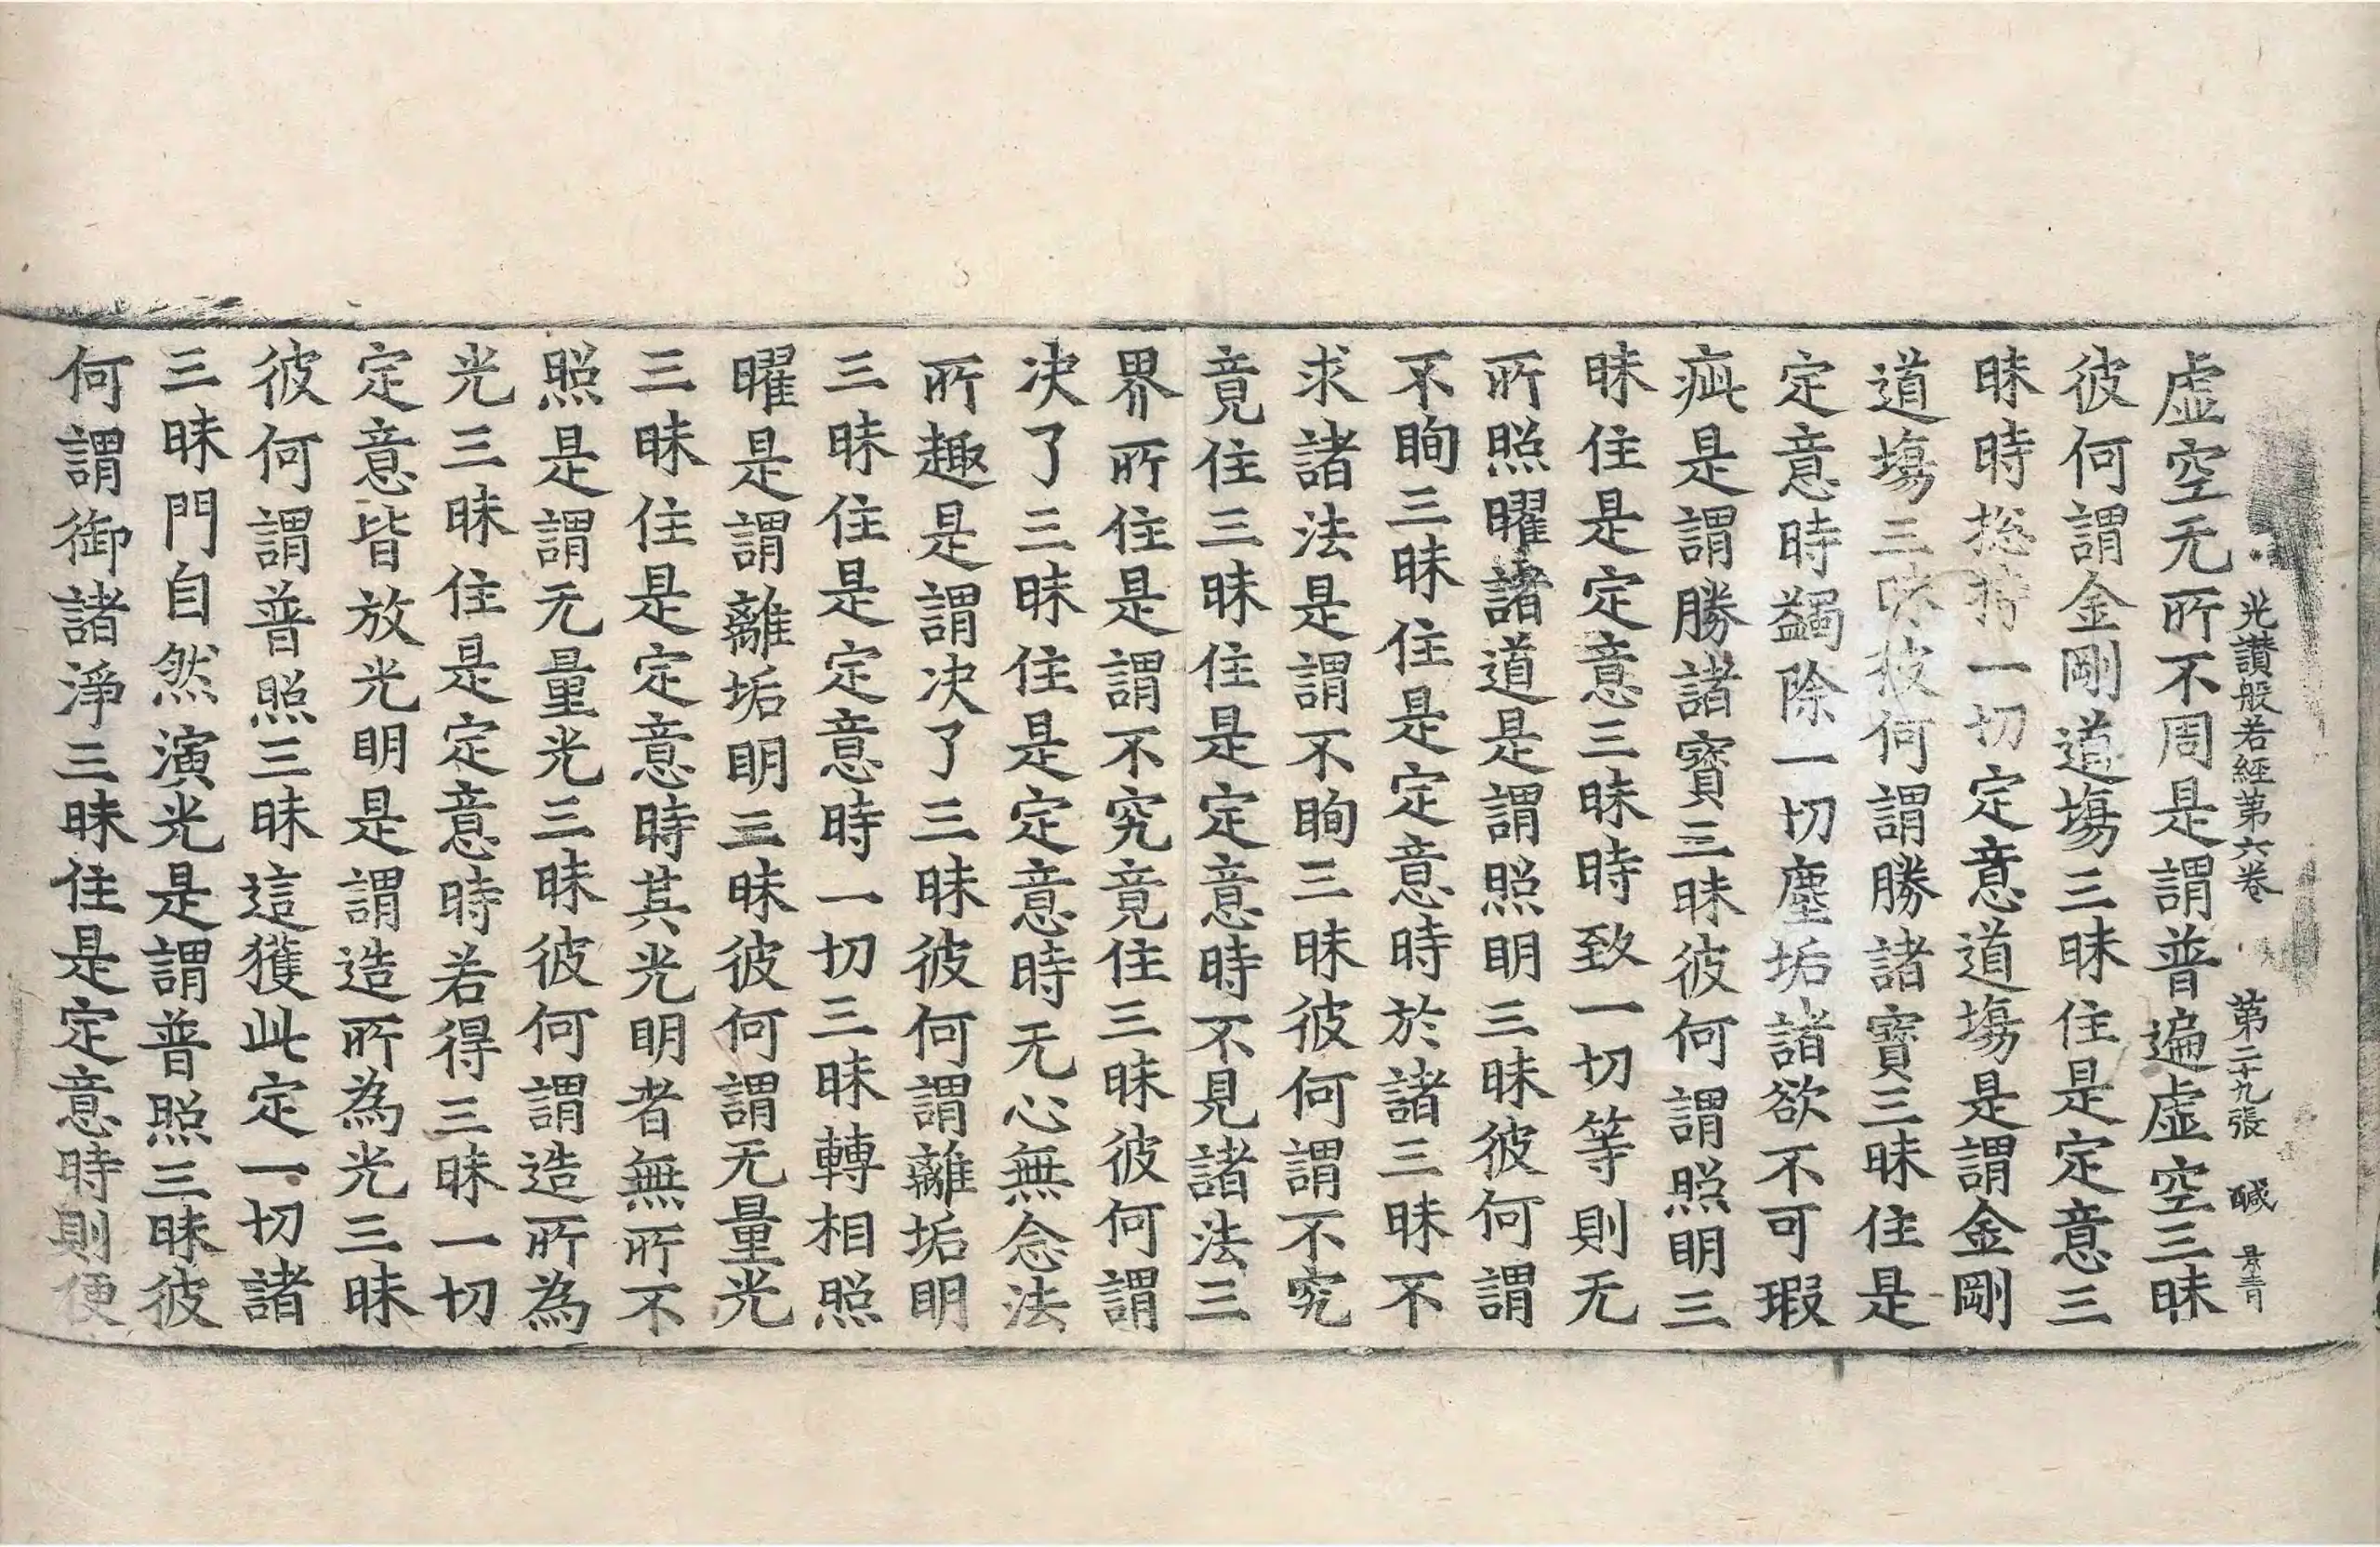 光讃般若經第六卷 第二十九張 醎
虛空无所不周是謂普遍虛空三昧
彼何謂金剛道塲三昧住是定意三
昧時捴持一切定意道塲是謂金剛
道塲三昧彼何謂勝諸寳三昧住是
定意時蠲除一切塵垢諸欲不可瑕
疵是謂勝諸寳三昧彼何謂照明三
昧住是定意三昧時致一切等則无
所照曜諸道是謂照明三昧彼何謂
不眴三昧住是定意時於諸三昧不
求諸法是謂不眴三昧彼何謂不究
竟住三昧住是定意時不見諸法三
界所住是謂不究竟住三昧彼何謂
决了三昧住是定意時无心無念法
所趣是謂决了三昧彼何謂離垢明
三昧住是定意時一切三昧轉相照
曜是謂離垢明三昧彼何謂无量光
三昧住是定意時其光明者無所不
照是謂无量光三昧彼何謂造所為
光三昧住是定意時若得三昧一切
定意皆放光明是謂造所為光三昧
彼何謂普照三昧這獲此定一切諸
三昧門自然演光是謂普照三昧彼
何謂御諸淨三昧住是定意時則便